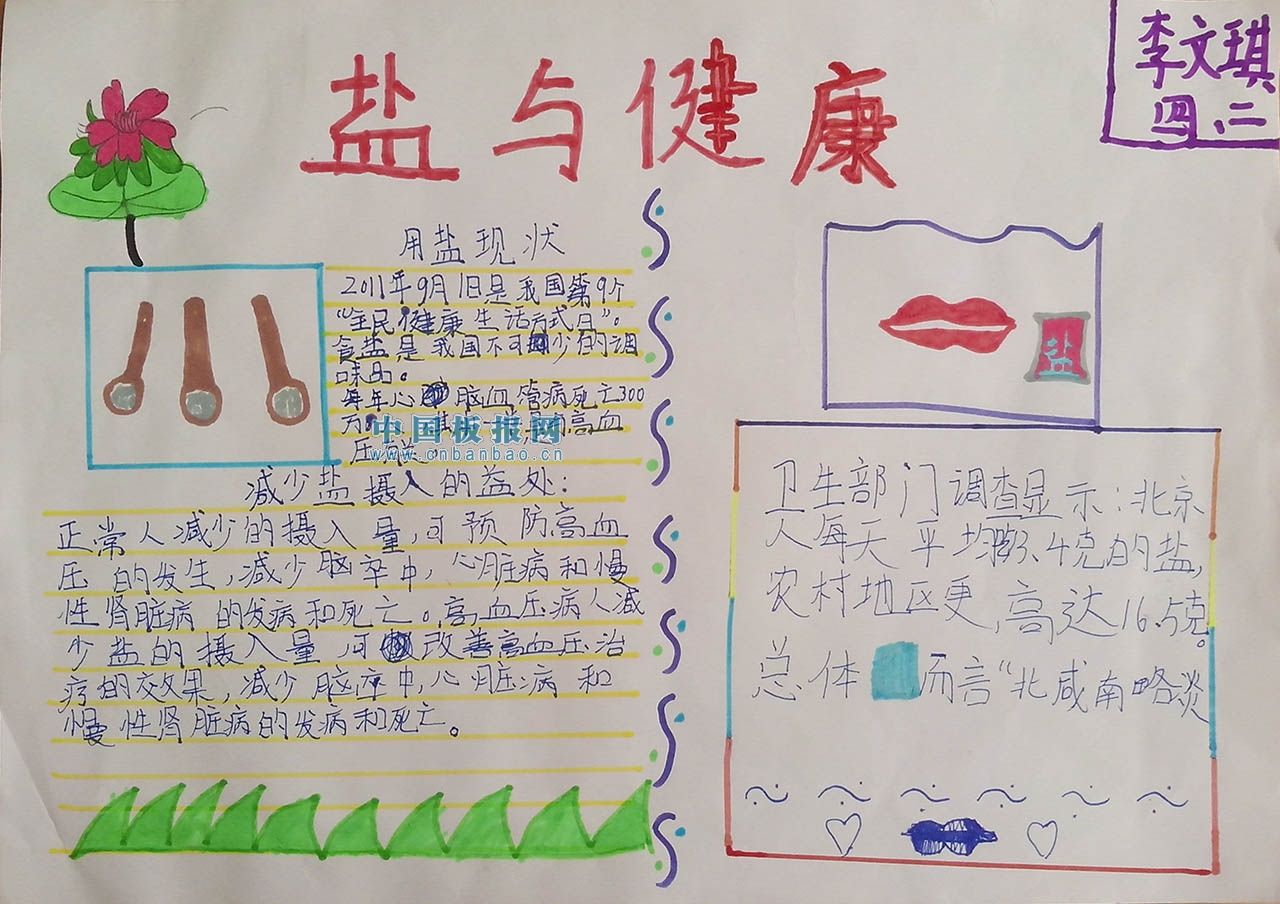 盐与健康
李文琪
四、二
用盐现状
2011年9月1日是我国第9个
“全民健康生活方式日”。
食盐是我国不可少的调
味品。
每年心脑血管病死亡300
万 一 高血
压有关。
中国板报网
www.cnbanbao.cn
减少盐摄入的益处：
正常人减少的摄入量，可预防高血
压的发生，减少脑卒中，心脏病和慢
性肾脏病的发病和死亡。高血压病人减
少盐的摄入量可改善高血压治
疗的效果，减少脑卒中，心脏病和
慢性肾脏病的发病和死亡。
盐
卫生部门调查显示：北京
人每天平均 .4克的盐，
农村地区更，高达16.5克。
总体而言“北咸南略淡